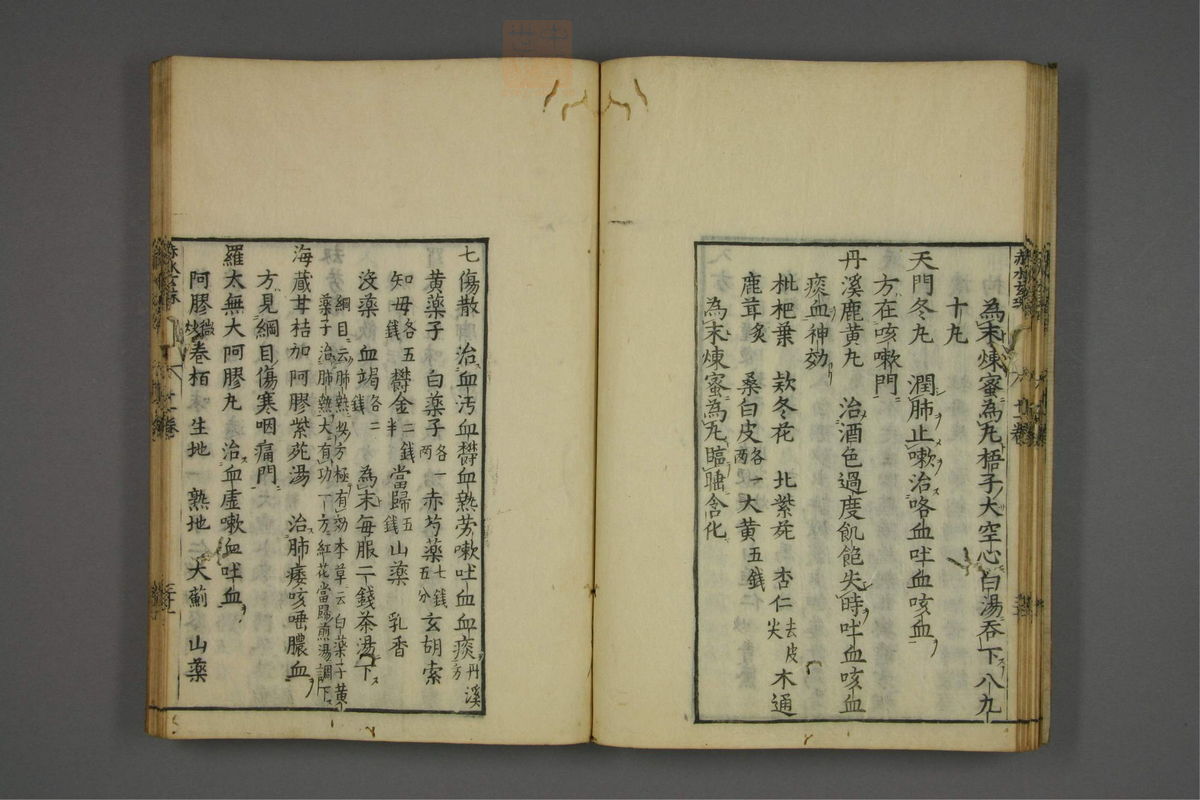 為末煉蜜為丸梧子大空心白湯吞下八九
十丸
天門冬丸 潤肺止嗽治咯血吐血咳血
方在咳嗽門
丹溪鹿黄丸 治酒色過度飢飽失時吐血咳血
痰血神効
枇杷葉 欵冬花 北紫菀 杏仁去皮尖 木通
鹿茸炙 桑白皮各一两 大黄五錢
為末煉蜜為丸臨睡含化
七傷散 治血汚血欝血熱劳嗽吐血血痰丹溪方
黄薬子 白薬子各一两 赤芍薬七錢五分 玄胡索
知母各五錢 欝金二錢半 當歸五錢 山薬 乳香
没薬 血竭各二錢 為末每服二錢茶湯下
綱目云肺熱此方極有効本草云白薬子黄
薬子治肺熱大有功一方紅花當歸煎湯調下
海蔵甘桔加阿膠紫菀湯 治肺痿咳唾膿血
方見綱目傷寒咽痛門
羅太無大阿膠丸 治血虚嗽血吐血
阿膠微炒 卷栢 生地 熟地 大薊 山薬